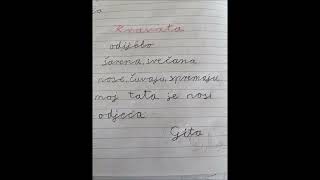 Kravata
odijelo
šarena, svečana
nose, čuvaju, spremaju
moj tata je nosi
odjeća
Gita